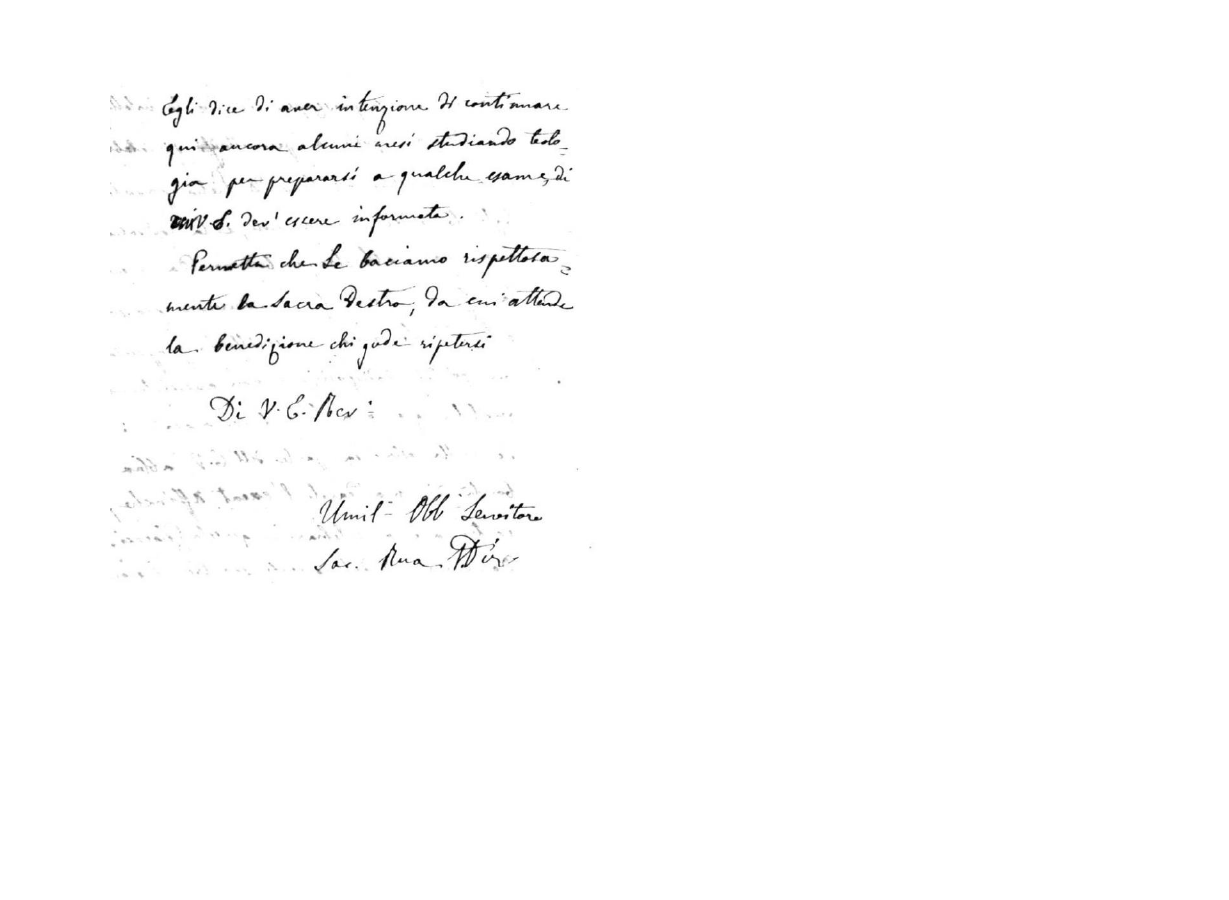 Egli dice di aver intenzione di continuare
qui ancora alcuni mesi studiando teolo_
gia per prepararsi a qualche esame, di
V. S. dev' essere informata.
Permetta che Le baciamo rispettosa=
mente la Sacra Destra, da cui attende
la benedizione chi gode ripetersi
Di V. E. Rev:
Umil- Obb Servitore
Sac. Rua